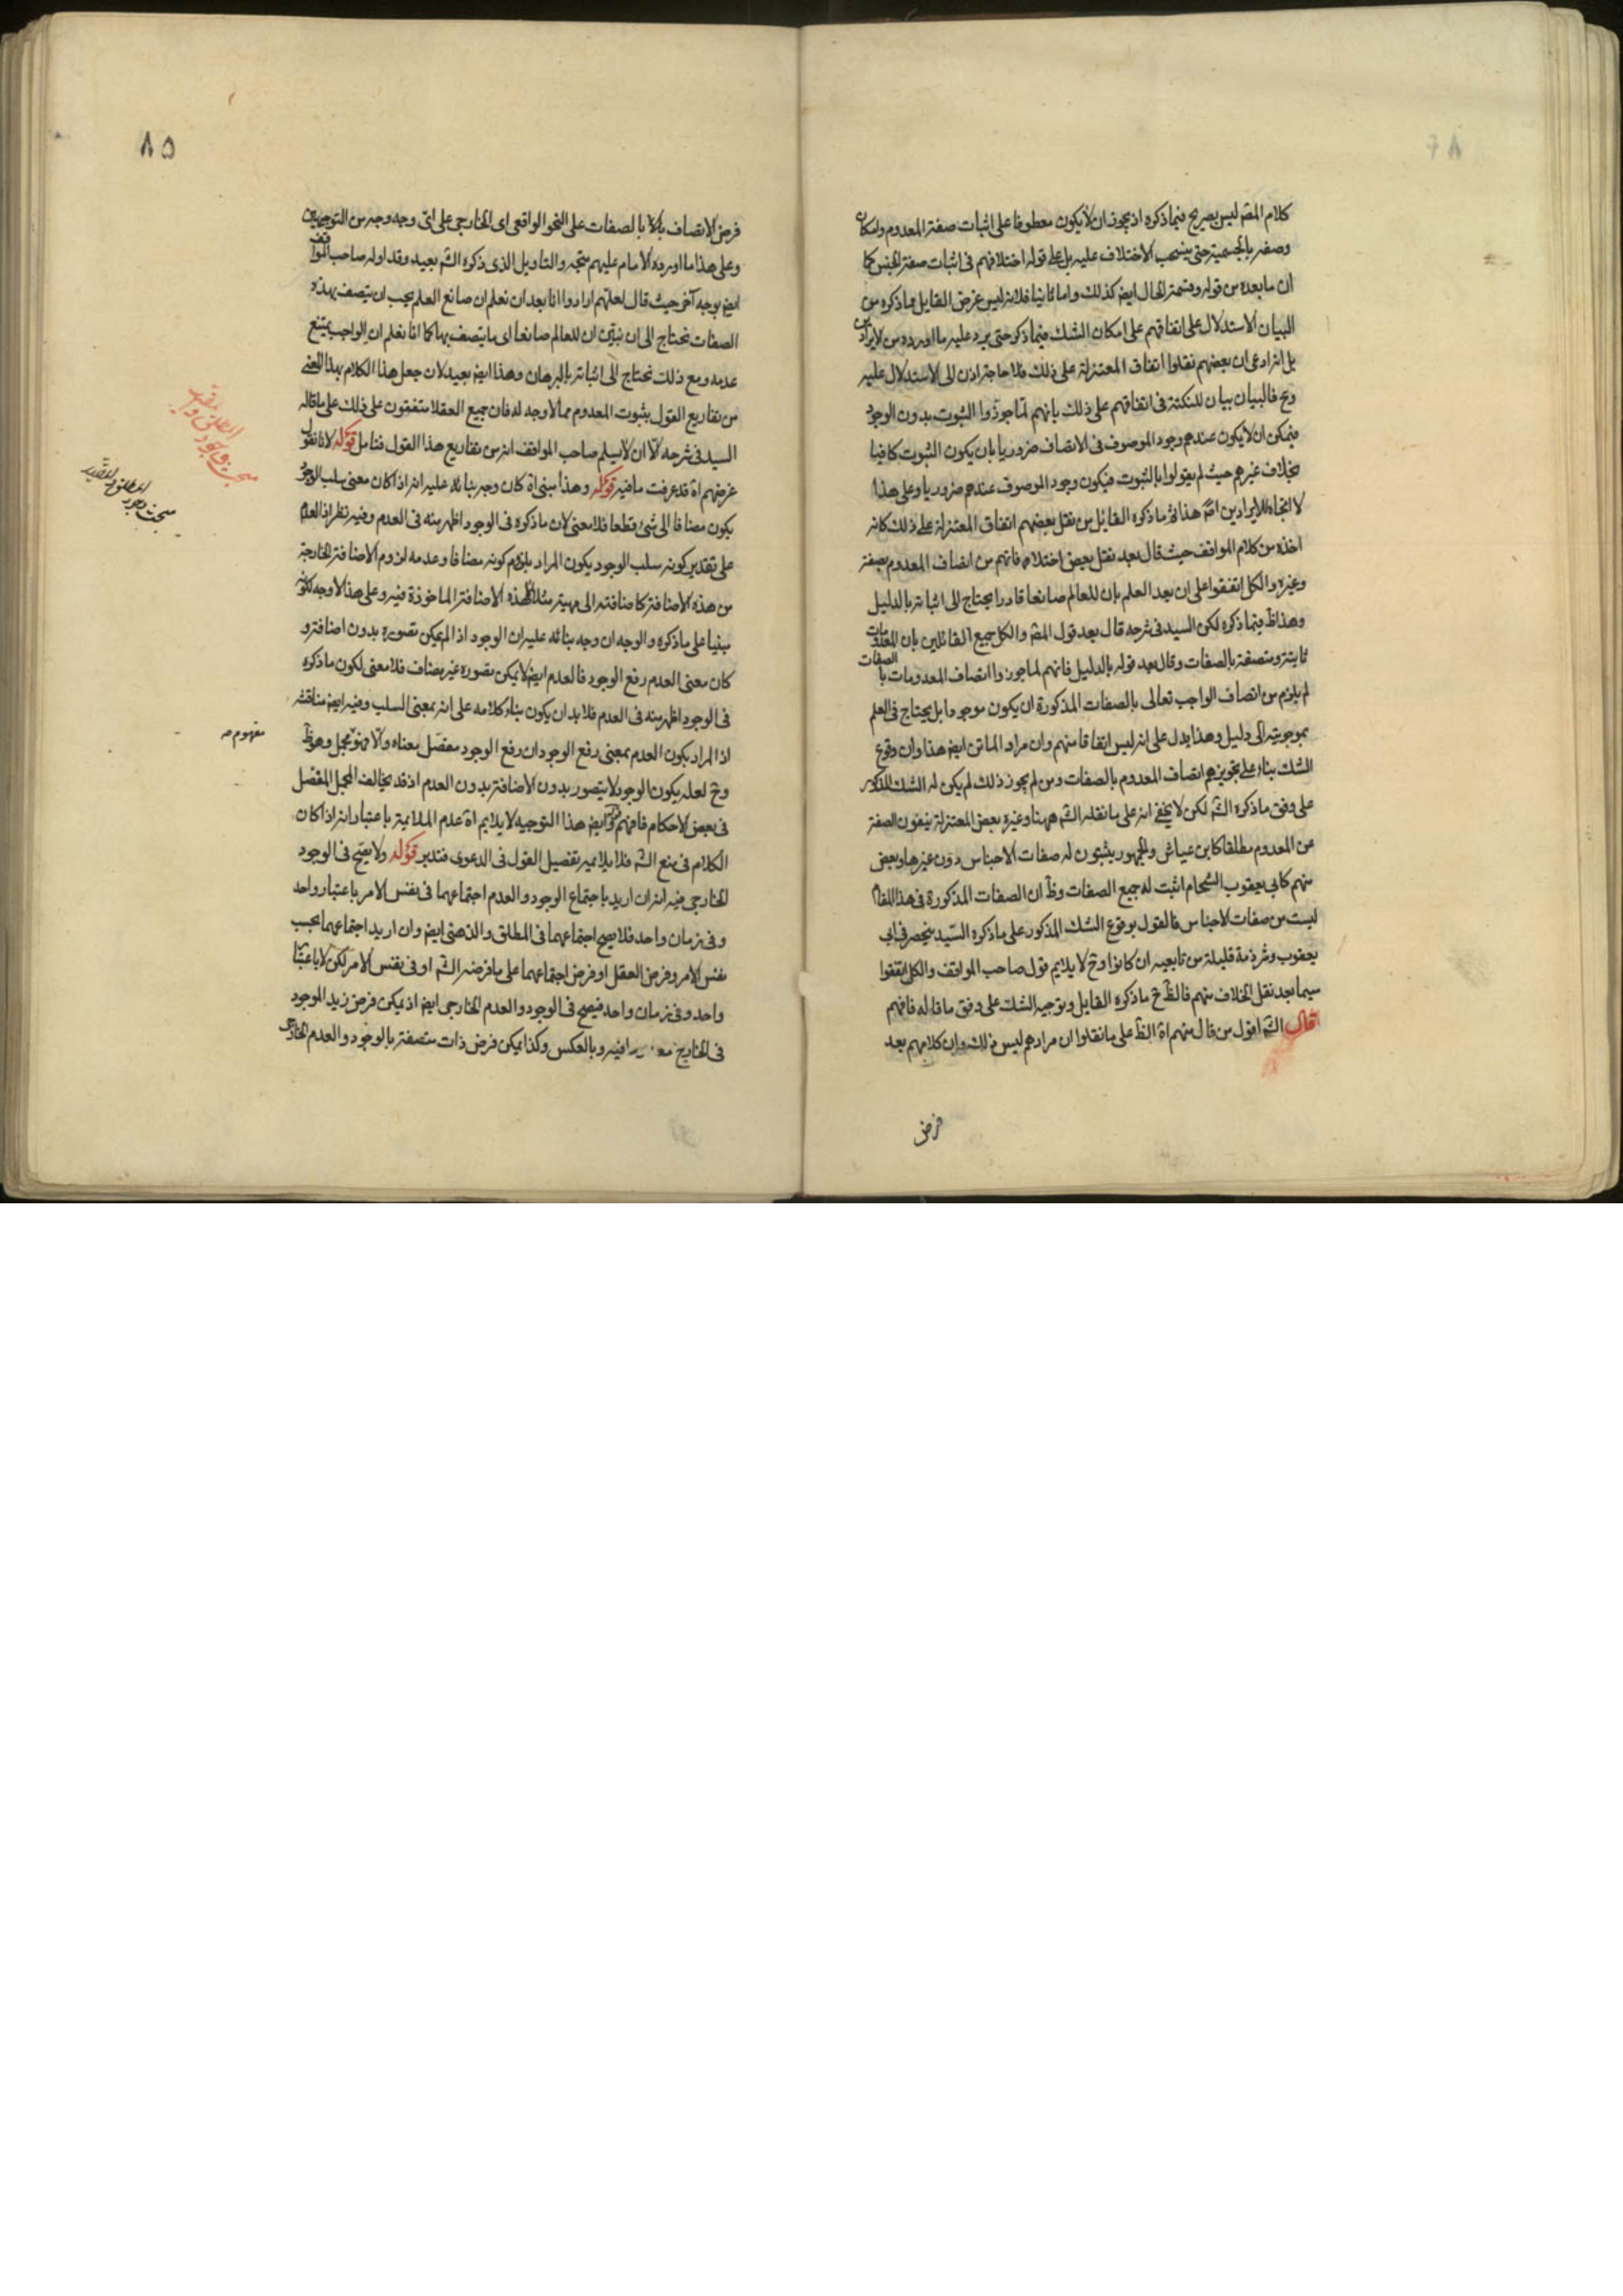 كلام المصّ ليس بصريح فيما ذكره اذ يجوز ان لا يكون معطوفا على اثبات صفة المعدوم وامكان
وصفه بالجسمية حتى ينسحب الاختلاف عليه بل على قوله اختلافهم فى اثبات صفة الجنس كما
ان ما بعده من قوله وقسمة الحال ايضا كذلك واما ثانيا فلانه ليس غرض القايل مما ذكره من
البيان الاستدلال على اتفاقهم على امكان الشك فيما ذكر حتى يرد عليه ما اورده من الايرادين
بل انه ادعى ان بعضهم نقلوا اتفاق المعتزلة على ذلك فلا حاجة اذن الى الاستدلال عليه
وح فالبيان بيان للنكتة فى اتفاقهم على ذلك بانهم لما جوزوا الثبوت بدون الوجود
فيمكن ان لا يكون عندهم وجود الموصوف فى الاتصاف ضروريا بان يكون الثبوت كافيا
بخلاف غيرهم حيث لم يقولوا بالثبوت فيكون وجود الموصوف عندهم ضروريا وعلى هذا
لا اتجاه للايرادين اصّ هذا ثم ما ذكره القائل من نقل بعضهم اتفاق المعتزلة على ذلك كانه
اخذه من كلام المواقف حيث قال بعد نقل بعض اختلافاتهم من اتصاف المعدوم بصفة
وغيره والكل اتفقوا على ان بعد العلم بان للعالم صانعا قادرا يحتاج الى اثباته بالدليل
وهذا ظ فيما ذكره لكن السيد فى شرحه قال بعد قول المصّ والكل جميع القائلين بان المعدومات
ثابتة ومتصفة بالصفات وقال بعد قوله بالدليل فانهم لما جوزوا اتصاف المعدومات بالصفات
لم يلزم من اتصاف الواجب تعالى بالصفات المذكورة ان يكون موجودا بل يحتاج فى العلم
بموجوديته الى دليل وهذا يدل على انه ليس اتفاقا منهم وان مراد الماتن ايضا هذا وان وقوع
الشك بناء على تجويزهم اتصاف المعدوم بالصفات ومن لم يجوز ذلك لم يكن له الشك المذكور
على وفق ما ذكره الشّ لكن لا يخفى انه على ما نقله الشّ ههنا وغيره بعض المعتزلة ينفون الصفة
عن المعدوم مطلقا كابن عياش والجمهور يثبتون له صفات الاجناس دون غيرها وبعض
منهم كابى يعقوب الشحام اثبت له جميع الصفات وظ ان الصفات المذكورة فى هذا المقام
ليست من صفات الاجناس فالقول بوقوع الشك المذكور على ما ذكره السيد ينحصر فى ابى
يعقوب وشرذمة قليلة من تابعيه ان كانوا وح لا يلايم قول صاحب المواقف والكل اتفقوا
سيما بعد نقل الخلاف منهم فالظ ح ما ذكره القايل وتوجيه الشك على وفق ما قاله فافهم
قال الشّ اقول من قال منهم اه الظ على ما نقلوا ان مرادهم ليس ذلك وان كلامهم بعد
فرض
٨٥
فرض الاتصاف بالصفات على النحو الواقعى اى الخارجى على اى وجه وجه من التوجيهين
وعلى هذا ما اورده الامام عليهم متجه والتاويل الذى ذكره الشّ بعيد وقد اوله صاحب المواقف
ايضا بوجه آخر حيث قال لعلهم ارادوا انا بعد ان نعلم ان صانع العلم يجب ان يتصف بهذه
الصفات نحتاج الى ان نبين ان للعالم صانعا اى ما يتصف بها كما انا نعلم ان الواجب يمتنع
عدمه ومع ذلك نحتاج الى اثباته بالبرهان وهذا ايضا بعيد لان جعل هذا الكلام بهذا المعنى
من تفاريع القول بثبوت المعدوم مما لا وجه له فان جميع العقلا متفقون على ذلك على ما قاله
السيد فى شرحه الا ان لا يسلم صاحب المواقف انه من تفاريع هذا القول فتامل قوله لانا نقول
غرضهم اه قد عرفت ما فيه قوله وهذا مبنى اه كان وجه بنائه عليه انه اذا كان معنى سلب الوجود
يكون مضافا الى شئ قطعا فلا معنى لان ما ذكره فى الوجود اظهر منه فى العدم وفيه نظر اذ العدم
على تقدير كونه سلب الوجود يكون المراد بلزوم كونه مضافا وعدمه لزوم الاضافة الخارجة
من هذه الاضافة كاضافته الى مهية مثلا لا هذه الاضافة الماخوذة فيه وعلى هذا لا وجه لكونه
مبنيا على ما ذكره والوجه ان وجه بنائه عليه ان الوجود اذ لم يمكن تصوره بدون اضافة و
كان معنى العدم رفع الوجود فالعدم ايضا لا يمكن تصوره غير مضاف فلا معنى لكون ما ذكره
فى الوجود اظهر منه فى العدم فلا بد ان يكون بناء كلامه على انه بمعنى السلب وفيه ايضا مناقشة
اذ المراد بكون العدم بمعنى رفع الوجود ان رفع الوجود مفصل معناه والا فهو مجمل وهو ظ
وح لعله يكون الوجود لا يتصور بدون الاضافة بدون العدم اذ قد يخالف المجمل المفصل
فى بعض الاحكام فافهم قوله ايضا هذا التوجيه لا يلايم اه عدم الملائمة باعتبار انه اذا كان
الكلام فى منع الشّ فلا يلايمه تفصيل القول فى الدعوى فتدبر قوله ولا يصح فى الوجود
الخارجى فيه انه ان اريد باجتماع الوجود والعدم اجتماعهما فى نفس الامر باعتبار واحد
وفى زمان واحد فلا يصح اجتماعهما فى المطلق والذهنى ايضا وان اريد اجتماعهما بحسب
نفس الامر وفرض العقل او فرض اجتماعهما على ما فرضه الشّ او فى نفس الامر لكن لا باعتبار
واحد وفى زمان واحد فيصح فى الوجود والعدم الخارجى ايضا اذ يمكن فرض زيد الموجود
فى الخارج فيه وبالعكس وكذا يمكن فرض ذات متصفة بالوجود والعدم الخارجى
مفهوم صه
مبحث وجود
المطلق والمقيد
مبحث وجود
المطلق والمقيد